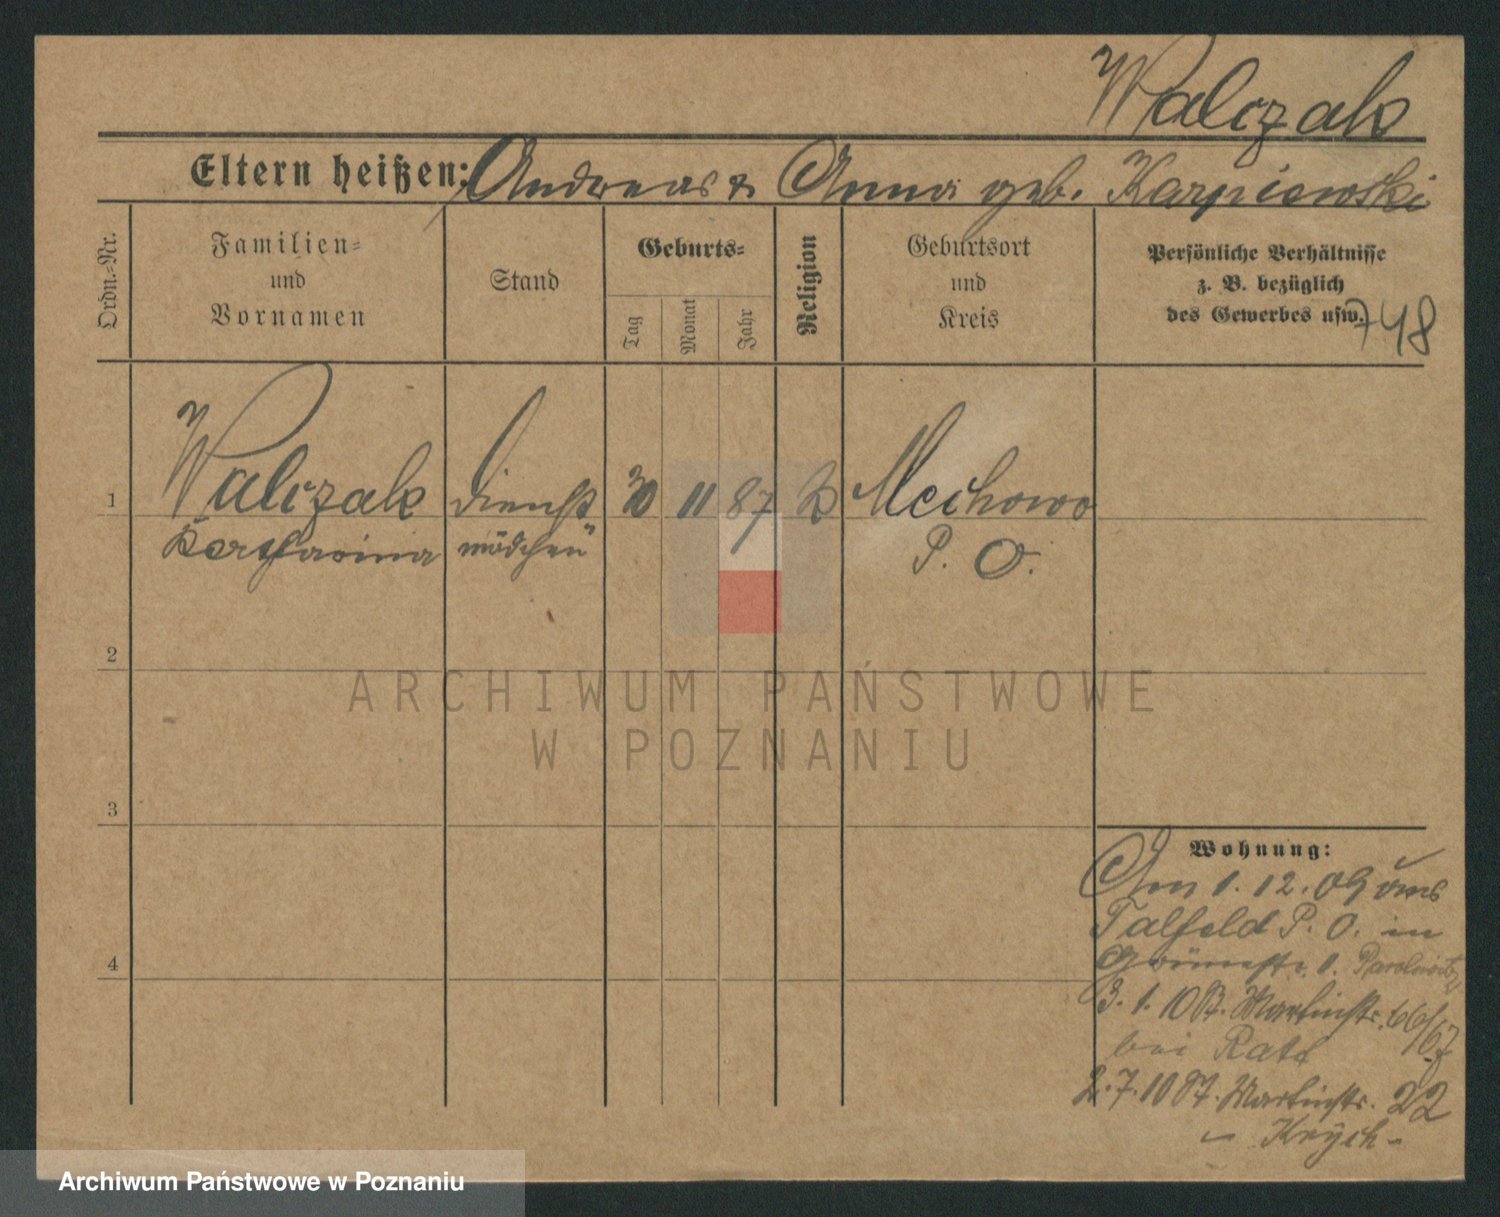 Walczak
Eltern heißen: Andreas & Anna geb. Karpiewski
Ordn.-Nr.
Familien-
und
Vornamen
Stand
Geburts-
Tag
Monat
Jahr
Religion
Geburtsort
und
Kreis
Persönliche Verhältnisse
z. B. bezüglich
des Gewerbes usw.
748
1
Walczak
Katharina
Dienst
mädchen
30
11
87
K
Mechowo
P. O.
2
3
4
Wohnung:
Am 1. 12. 09 aus
Talfeld P. O. in
Grünestr. 1.
3. 1. 10 St. Martinstr. 66/67
bei
2. 7. 10 St. Martinstr. 22
" Krych -
ARCHIWUM PAŃSTWOWE
W POZNANIU
Archiwum Państwowe w Poznaniu